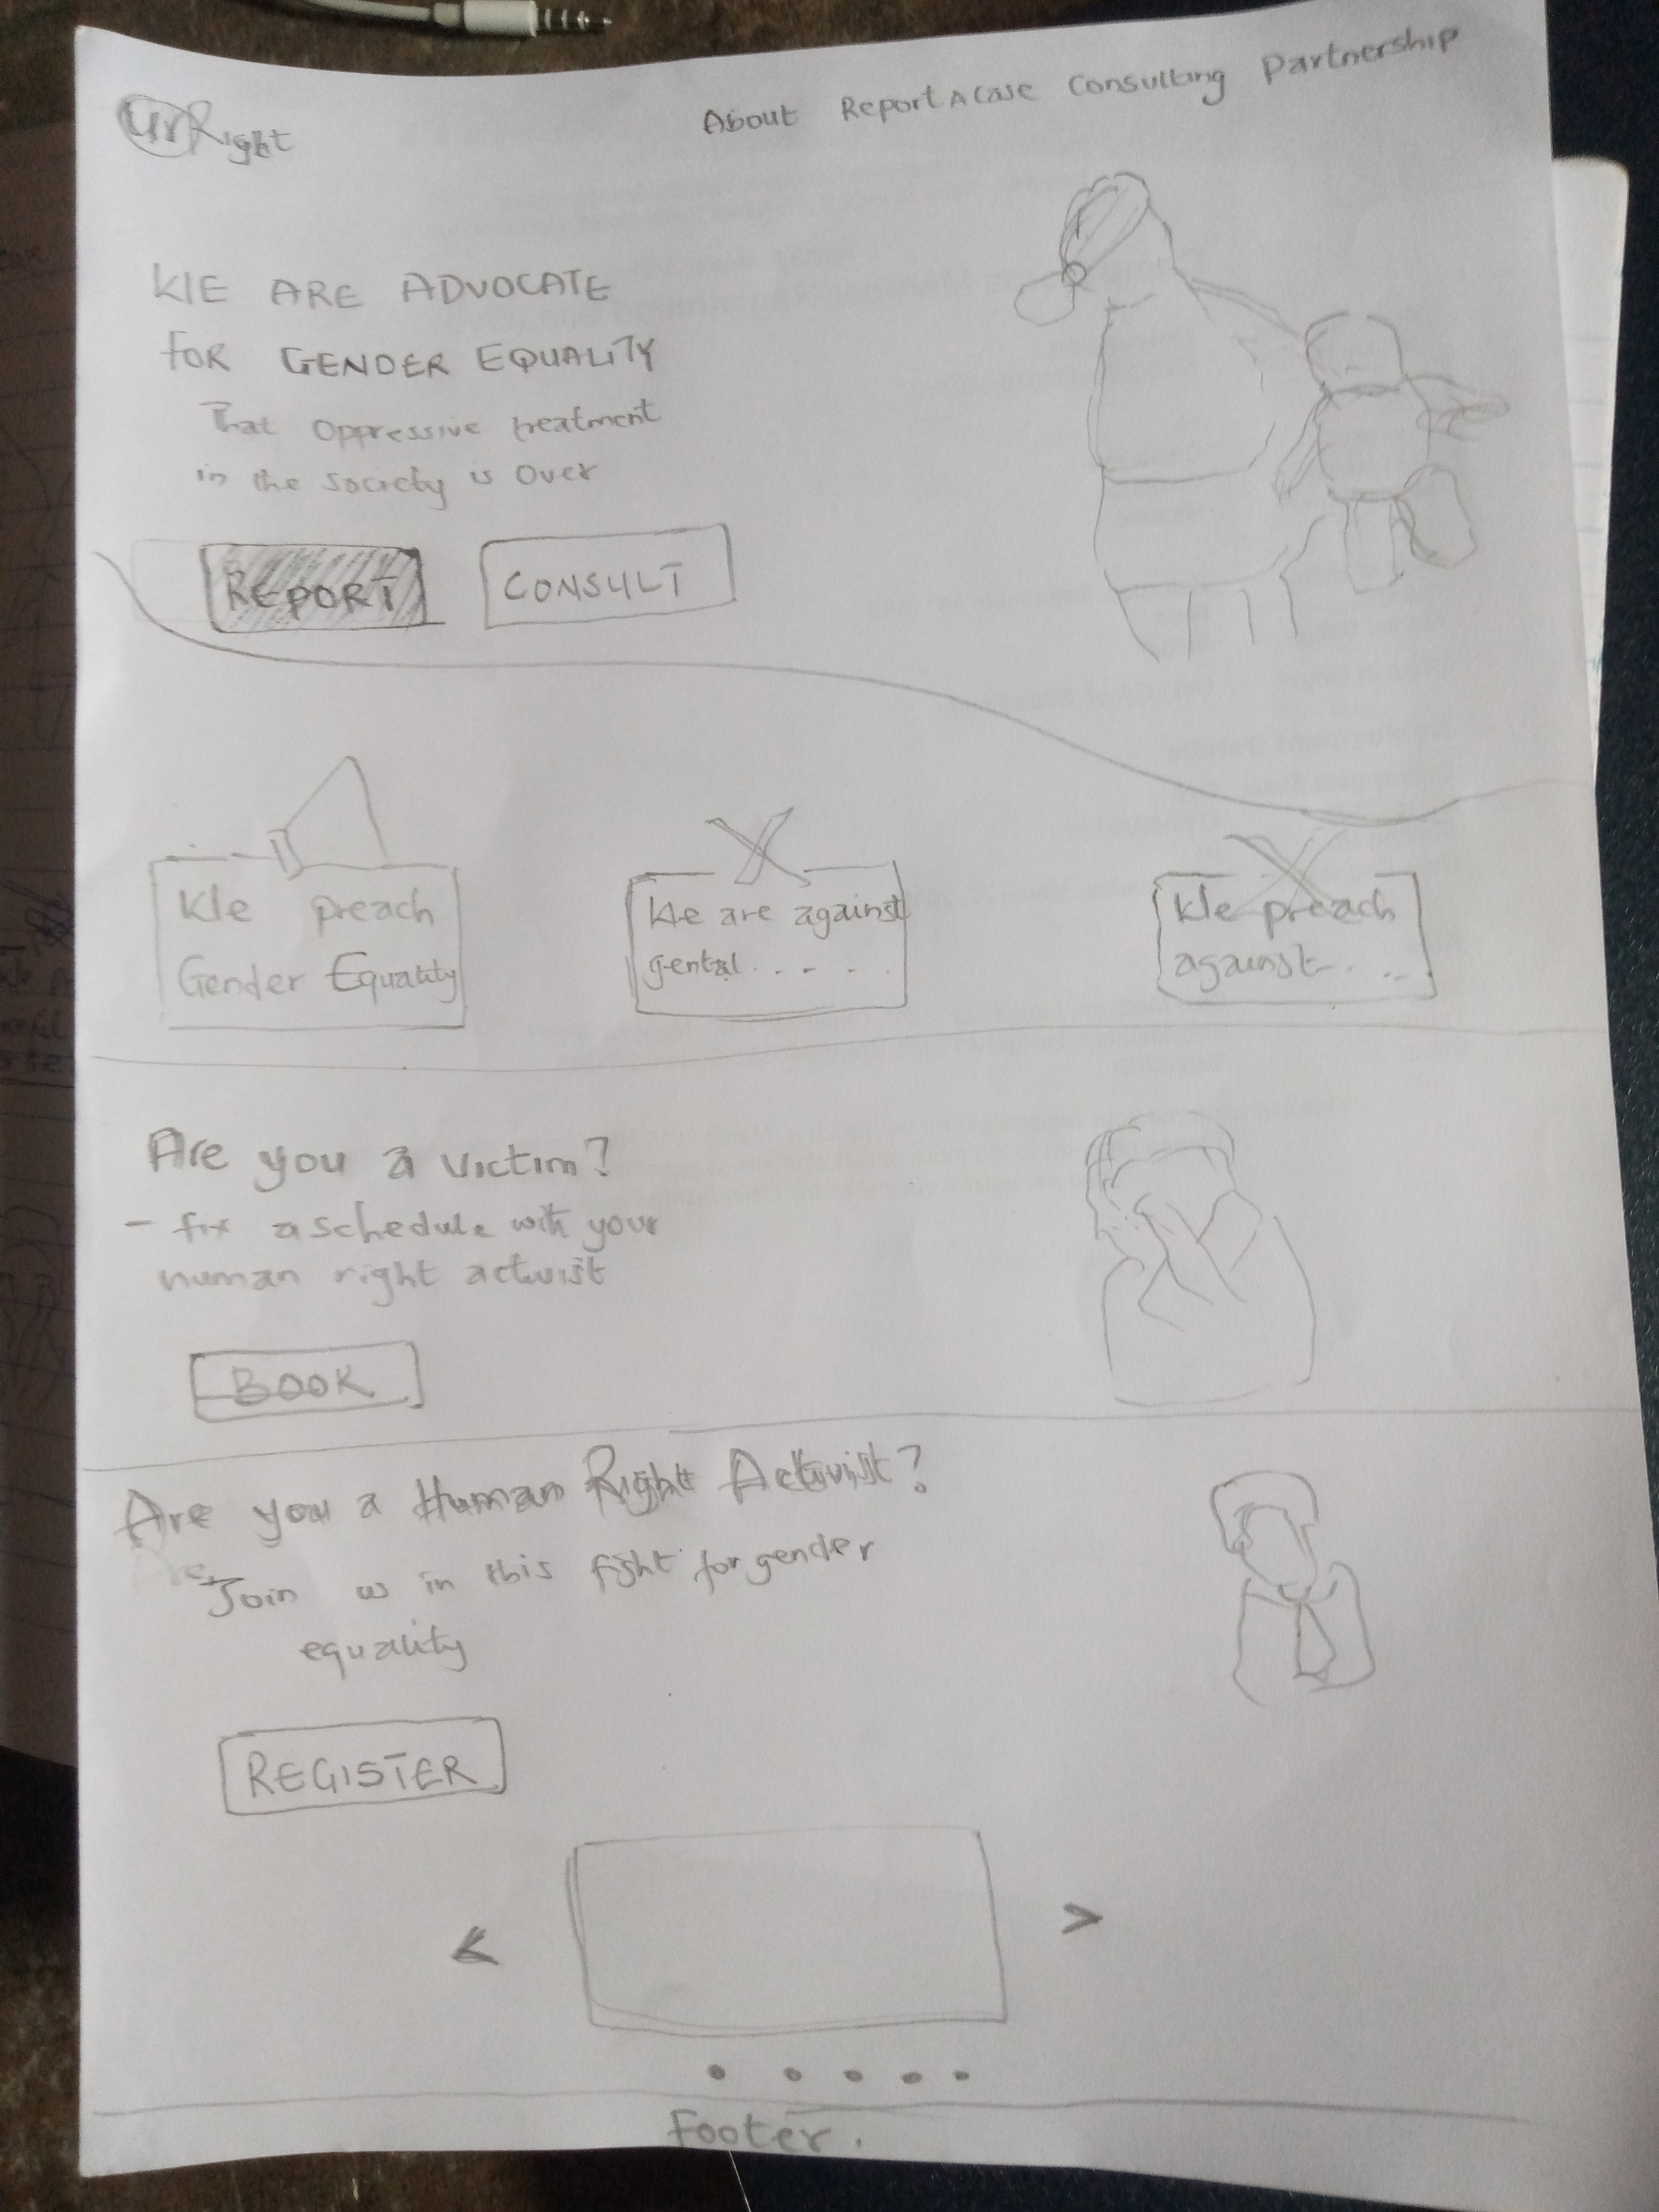 UrRight
About Report A Case Consulting Partnership
WE ARE ADVOCATE
FOR GENDER EQUALITY
That oppressive treatment
in the society is over
REPORT
CONSULT
We preach
Gender Equality
We are against
gental.. - . .
We preach
against-. ..
Are you a victim?
- fix a schedule with your
human right activist
BOOK
Are you a Human Right Activist?
Are
Join us in this fight for gender
equality
REGISTER
<
>
Footer.